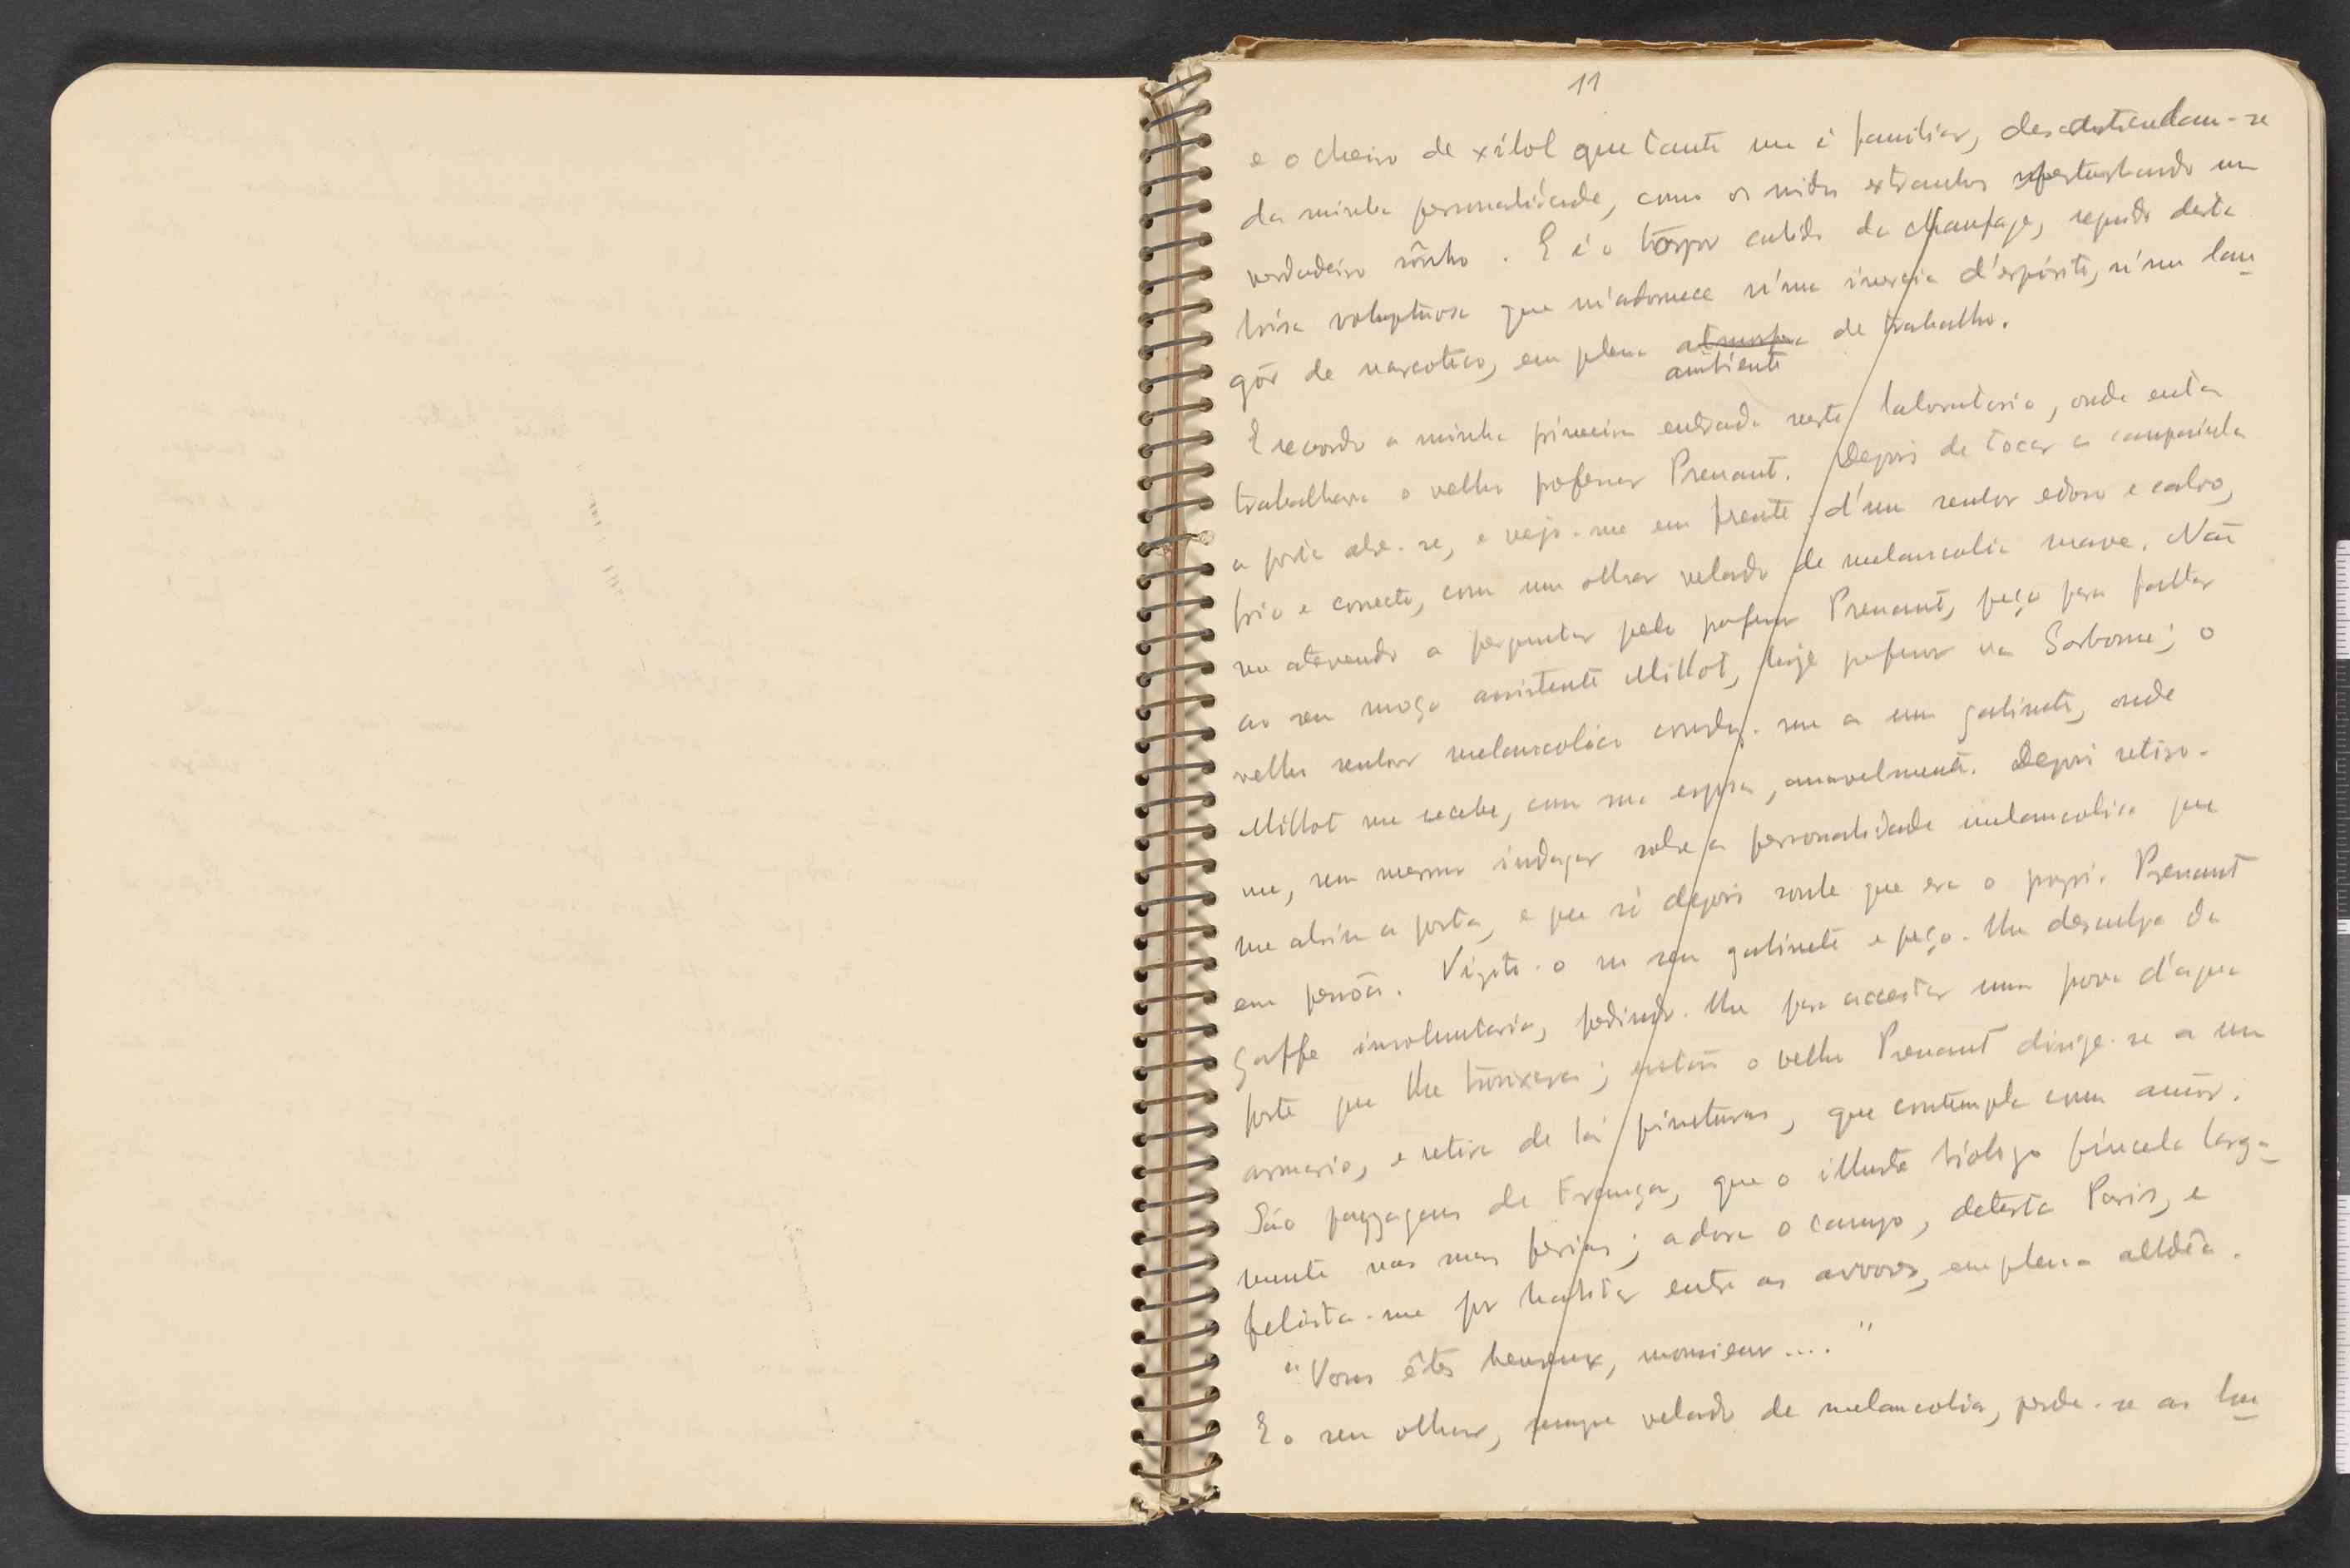 11
e o cheiro de xilol que tanto me é familiar, desentendam-se
da minha personalidade, como os ruidos extranhos perturbando um
verdadeiro sônho. E é o torpor calido da chaufage, seguido desta
brisa voluptuosa que m'adormece n'uma inercia d'espirito, n'um lan-
gôr de narcotico, em pleno atmosfera de trabalho.
ambiente
E recordo a minha primeira entrada neste laboratorio, onde então
trabalhava o velho professor Prenant. Depois de tocar a campainha
a porta abre-se, e vejo-me em frente d'um senhor edoso e calvo,
frio e correcto, com um olhar velado de melancolia suave. Não
me atrevendo a perguntar pelo professor Prenant, peço para falar
ao seu moço assistente Millot, hoje professor na Sorbonne; o
velho senhor melancolico conduz-me a um gabinete, onde
Millot me recebe, com sua esposa, amavelmente. Depois retiro-
me, sem mesmo indagar sobre a personalidade melancolica que
me abriu a porta, e que só depois soube que era o proprio Prenant
em pessôa. Vizito-o no seu gabinete e peço-lhe desculpa da
gaffe involuntaria, pedindo-lhe para acceitar uma prova d'agua
forte que lhe trouxera; então o velho Prenant dirige-se a um
armario, e retira de lá pinturas, que contempla com amôr.
São payzagens de França, que o illustre biologo pincela larga-
mente nas suas ferias; adora o campo, detesta Paris, e
felicita-me por habitar entre as arvores, em plena alldêa.
"Vous êtes heureux, monsieur...."
E o seu olhar, sempre velado de melancolia, perde-se ao lon-